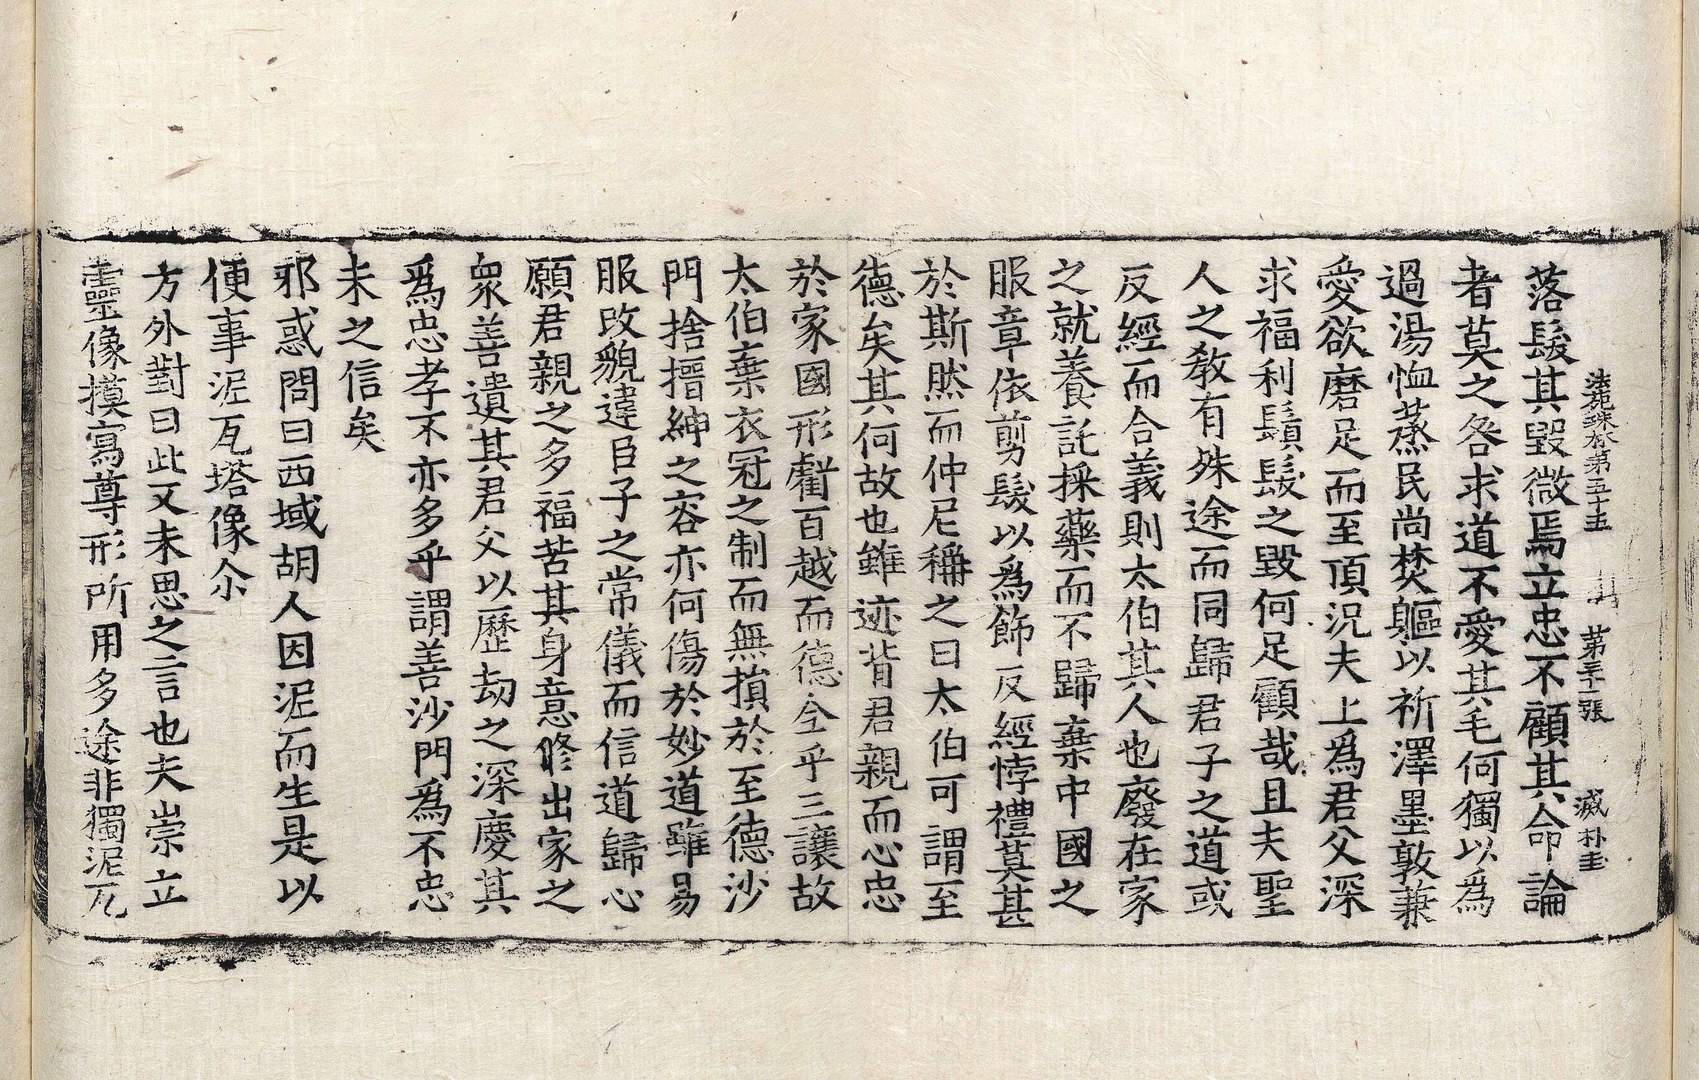 法苑珠林第五十五 第三十一張
落髮其毀微焉立忠不顧其命論
者莫之咎求道不愛其毛何獨以為
過湯恤蒸民尚焚軀以祈澤墨敦兼
愛欲磨足而至頂況夫上爲君父深
求福利鬚髮之毀何足顧哉且夫聖
人之教有殊途而同歸君子之道或
反經而合義則太伯其人也廢在家
之就養託採藥而不歸棄中國之
服章依剪髮以爲飾反經悖禮莫甚
於斯然而仲尼稱之曰太伯可謂至
德矣其何故也雖迹背君親而心忠
於家國形虧百越而德全乎三讓故
太伯棄衣冠之制而無損於至德沙
門捨搢紳之容亦何傷於妙道雖易
服改貌違臣子之常儀而信道歸心
願君親之多福苦其身意修出家之
衆善遺其君父以歷劫之深慶其
爲忠孝不亦多乎謂善沙門爲不忠
未之信矣
邪惑問曰西域胡人因泥而生是以
便事泥瓦塔像尒
方外對曰此又未思之言也夫崇立
靈像摸寫尊形所用多途非獨泥瓦